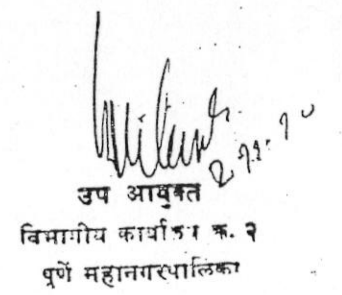 उप आयुक्त
विभागीय कार्यालय क्र. २
पुणें महानगरपालिका